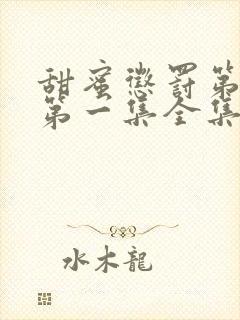 甜蜜懲罰第
第一集全集
水木龍